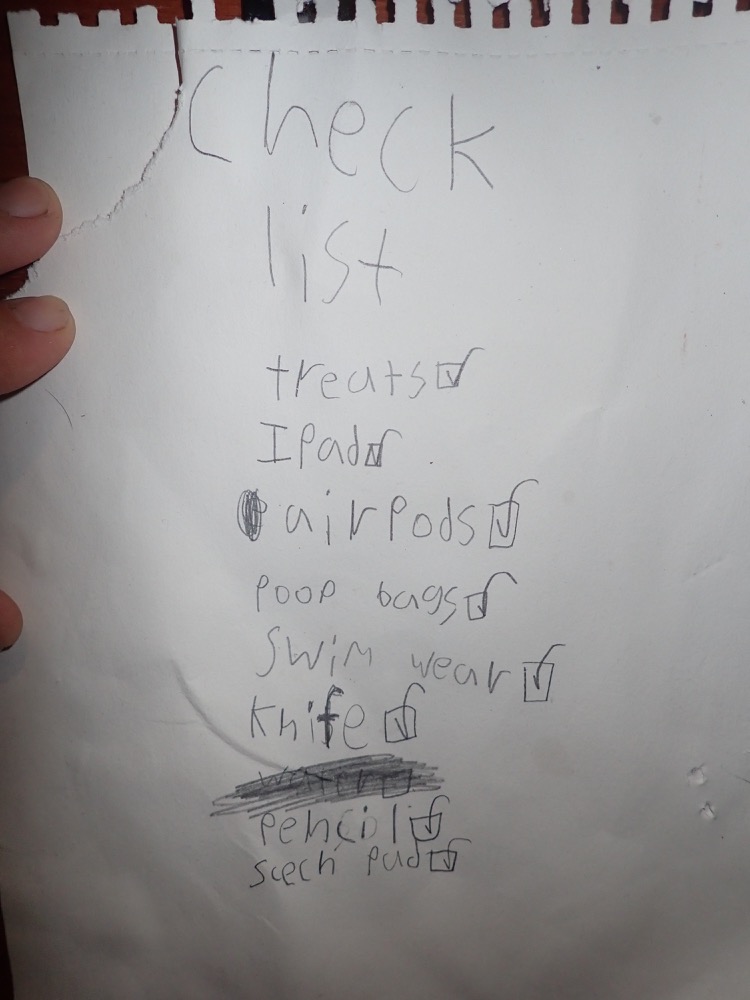 Check
list
treats ☑
IPad ☑
airpods ☑
poop bags ☑
swim wear ☑
knife ☑
pencil ☑
scech pad ☑